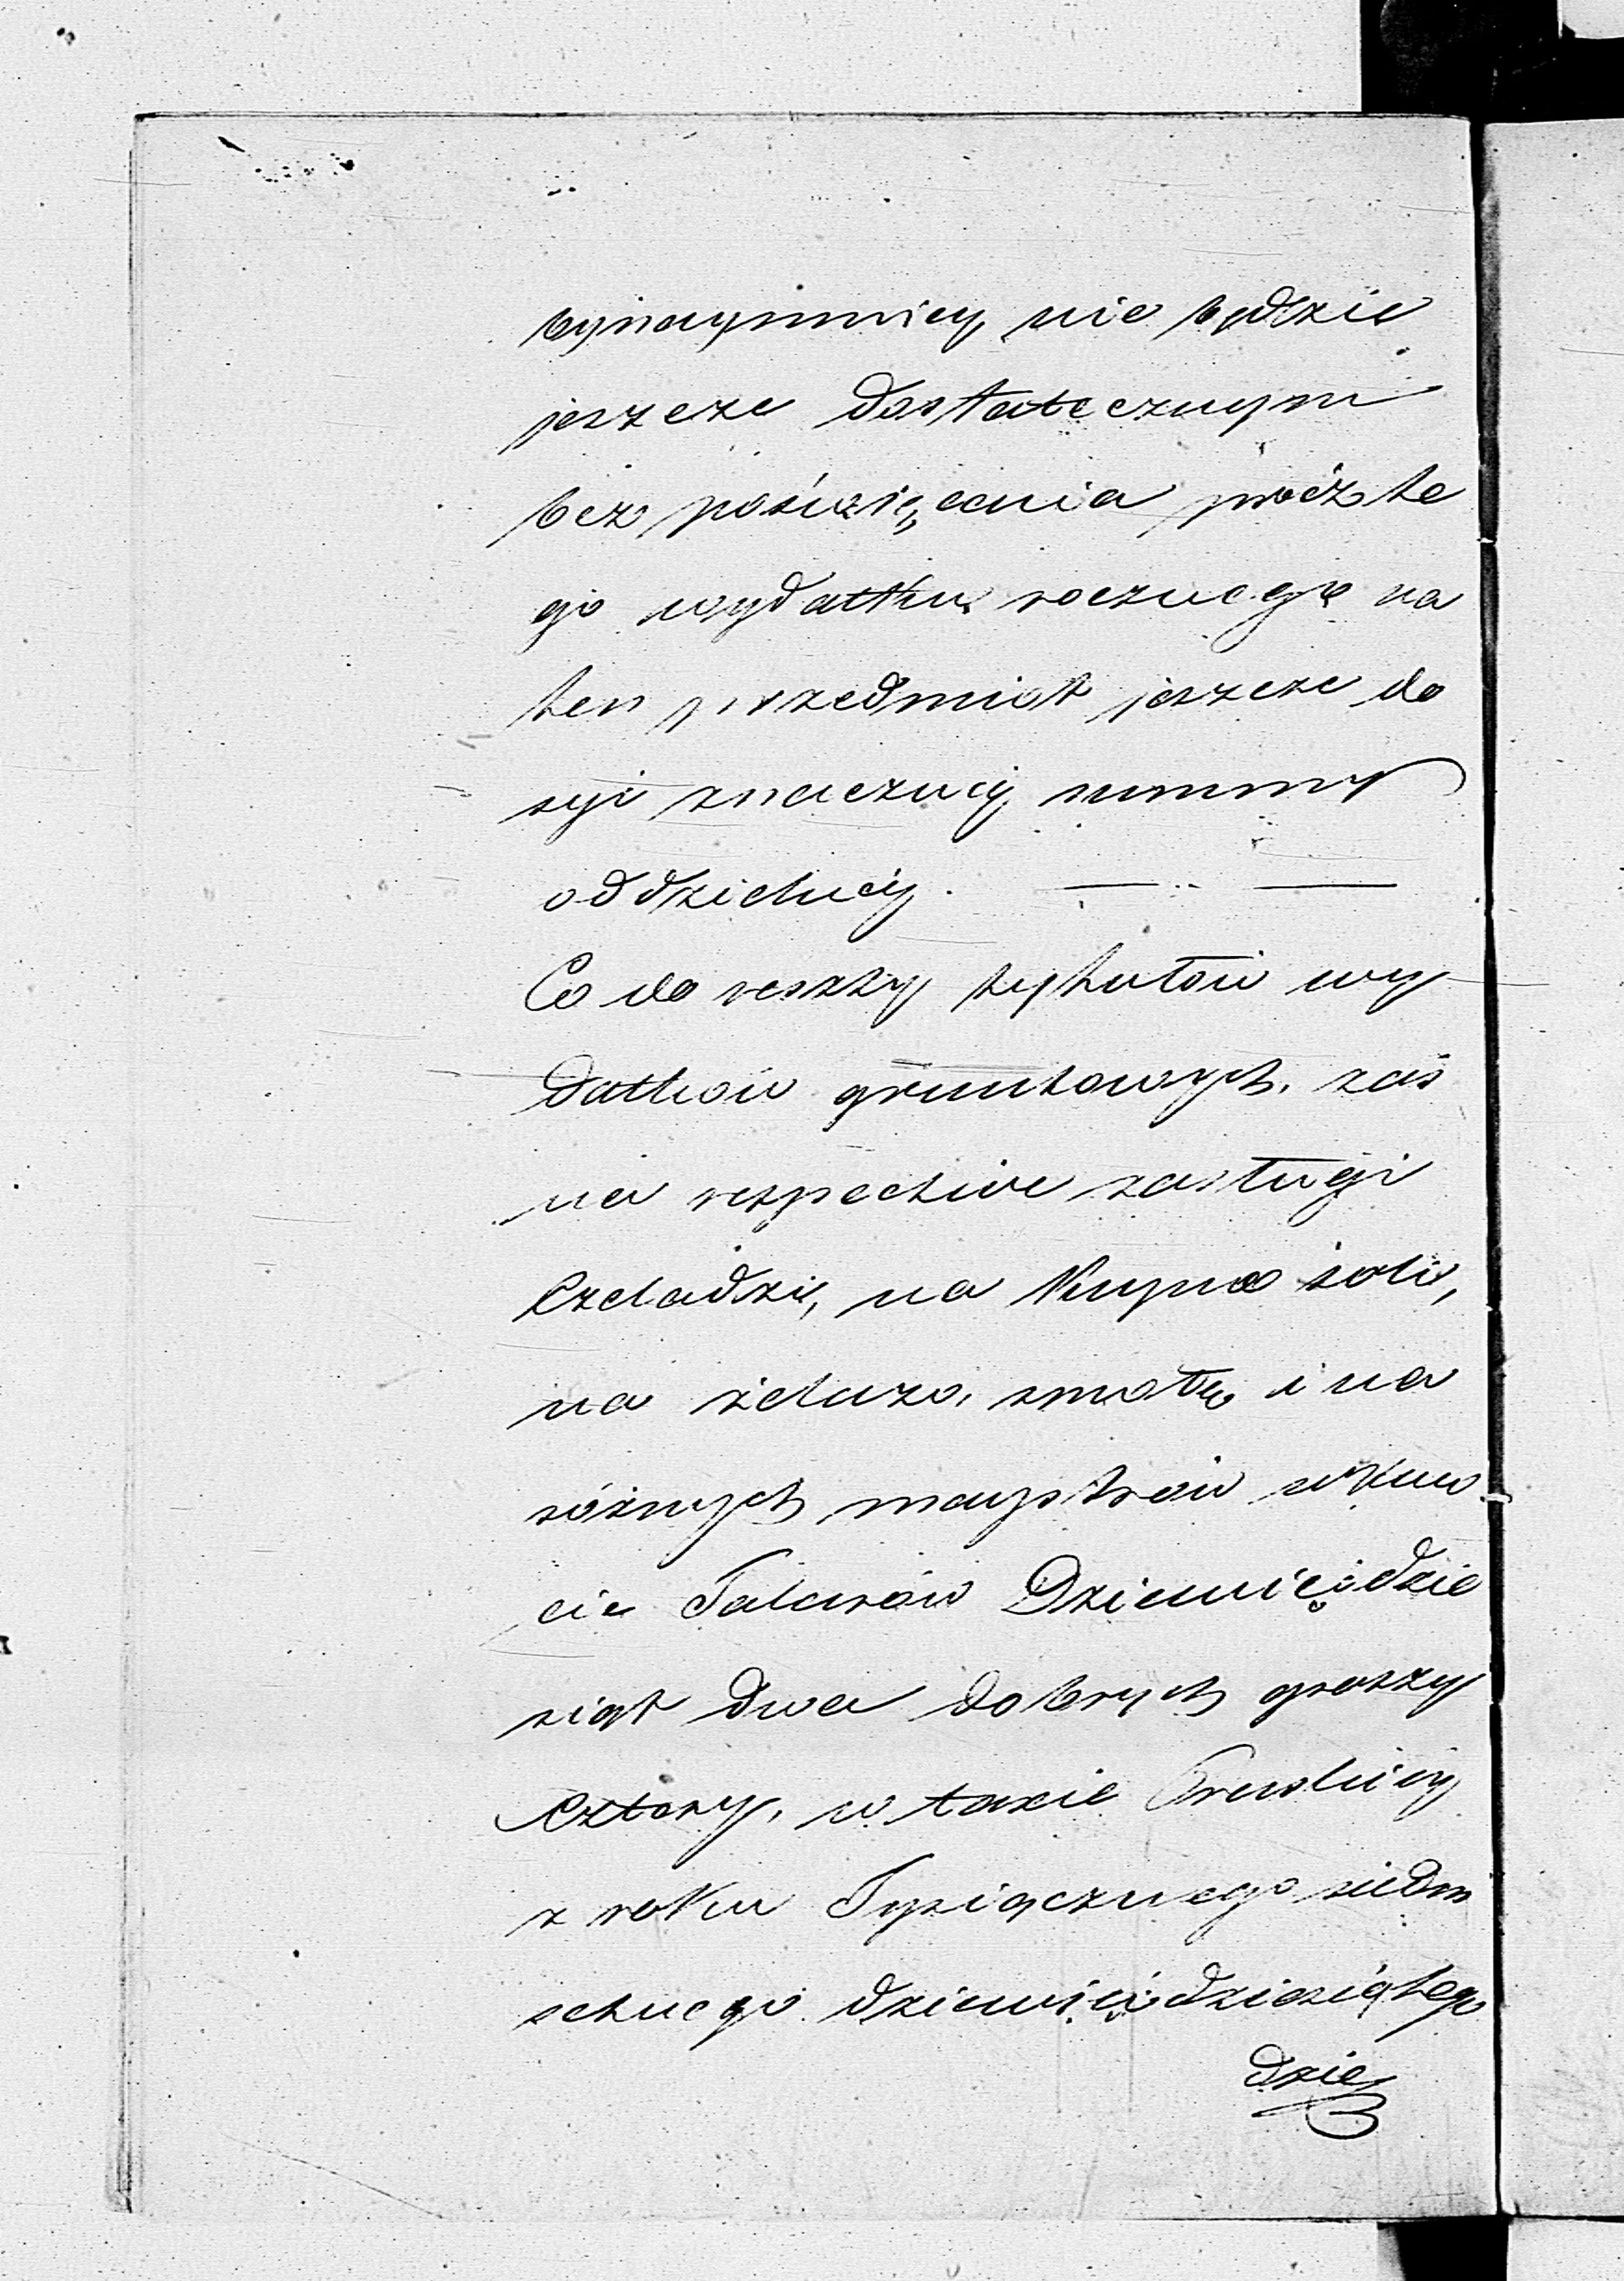 bynaymniey nie będzie
jeszcze dostatecznym
bez poświęcenia prócz te
go wydatku rocznego na
ten przedmiot jeszcze do
syć znaczney summy
oddzielney.
Co do reszty tytułów wy
datków gruntowych, zaś
na respective zasługi
Czeladzi, na Kupno soli,
na żelazo, smołę i na
różnych maystrów w Kwo
cie Talarów Dziewięćdzie
siąt dwa dobrych groszy
Cztery, w taxie Pruskiey
z roku Tysiącznego siedm
setnego dziewięćdziesiątego
dzie